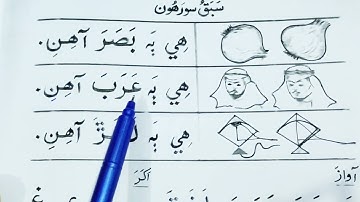 سَبَقُ سورهون
هِي ٻَہ بَصَرَ آهِنِ.
هِي ٻَہ عَرَبَ آهِنِ.
هِي ٻَہ آهِنِ.
آوازَ اکَرَ